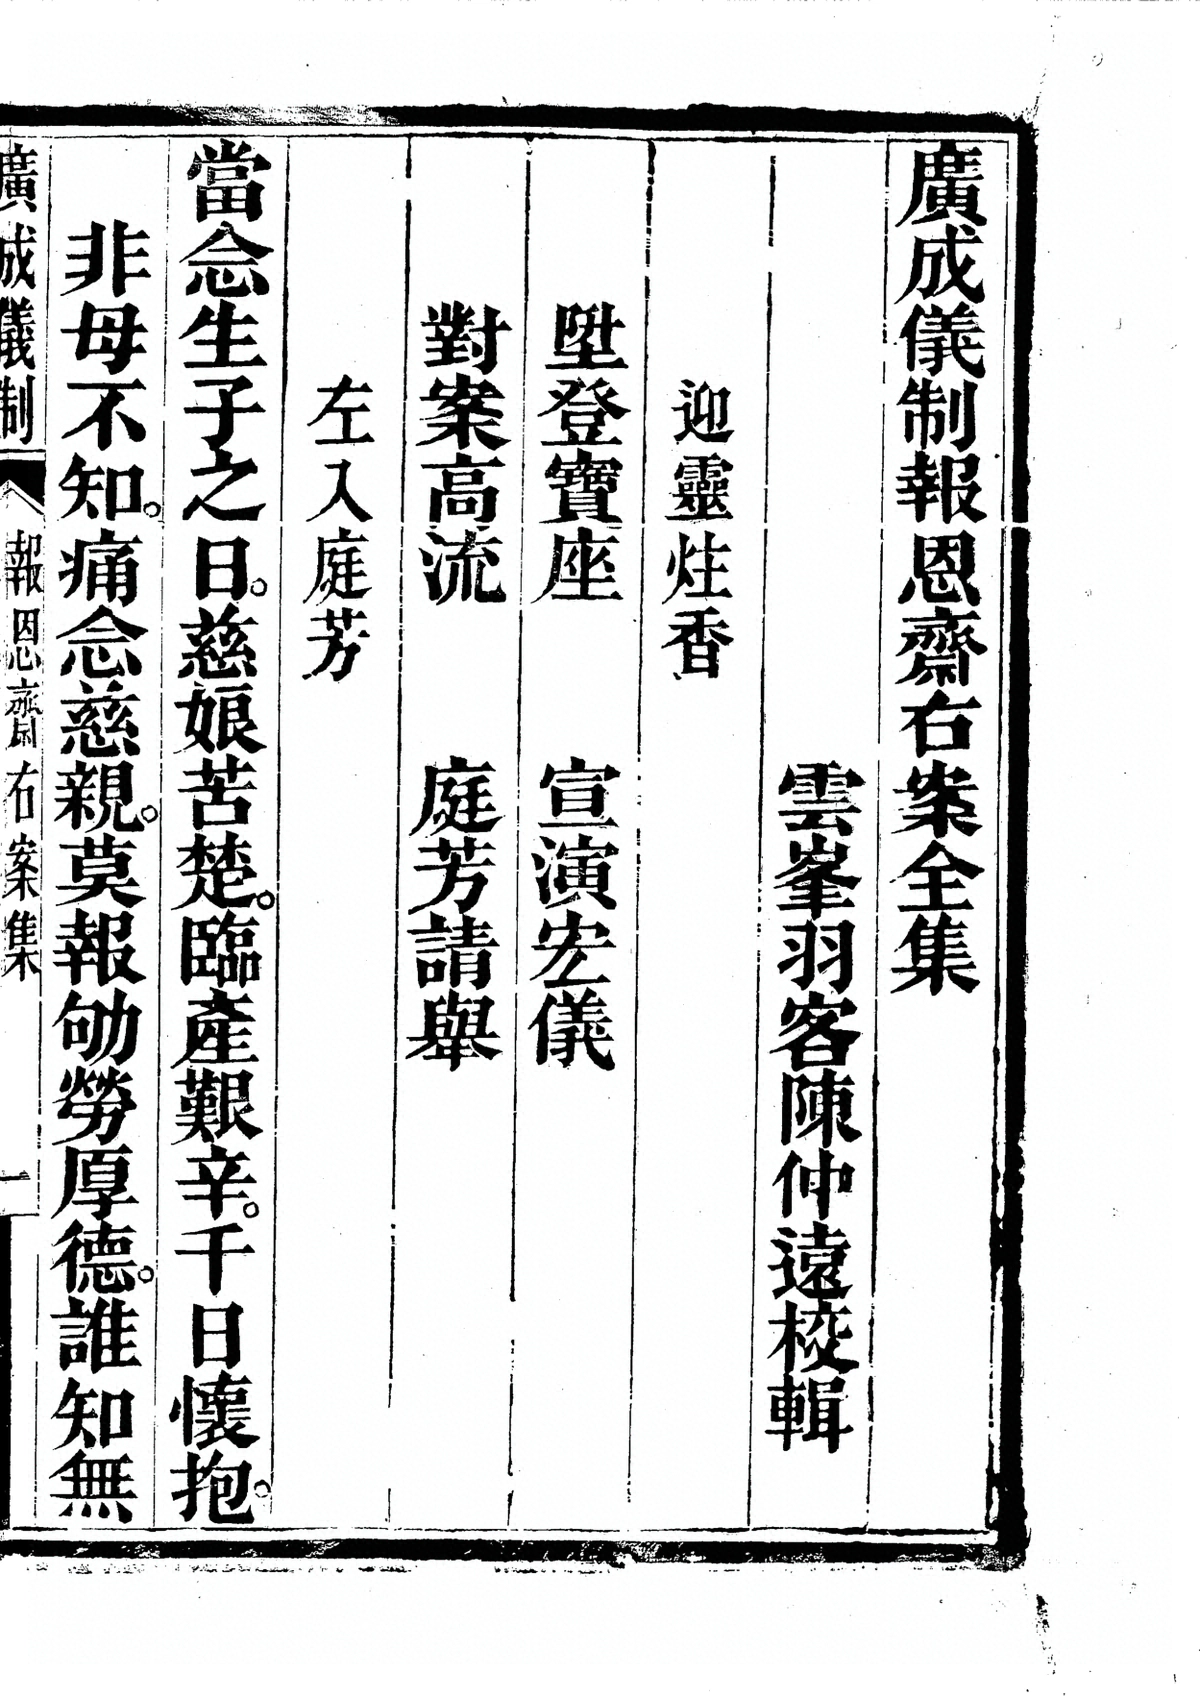 廣成儀制報恩齋右案全集
雲峯羽客陳仲遠校輯
迎靈炷香
陞登寶座　宣演宏儀
對案高流　庭芳請舉
左入庭芳
當念生子之日。慈娘苦楚。臨產艱辛。千日懷抱。
非母不知。痛念慈親。莫報劬勞厚德。誰知無
廣成儀制　報恩齋右案集　一